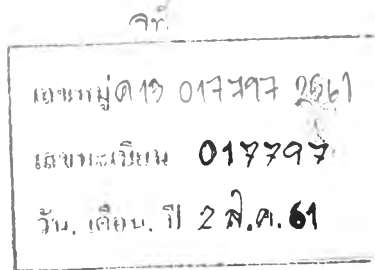 จท.
เลขหมู่ ค 13 017797 2561
เลขทะเบียน 017797
วัน, เดือน, ปี 2 ส.ค. 61